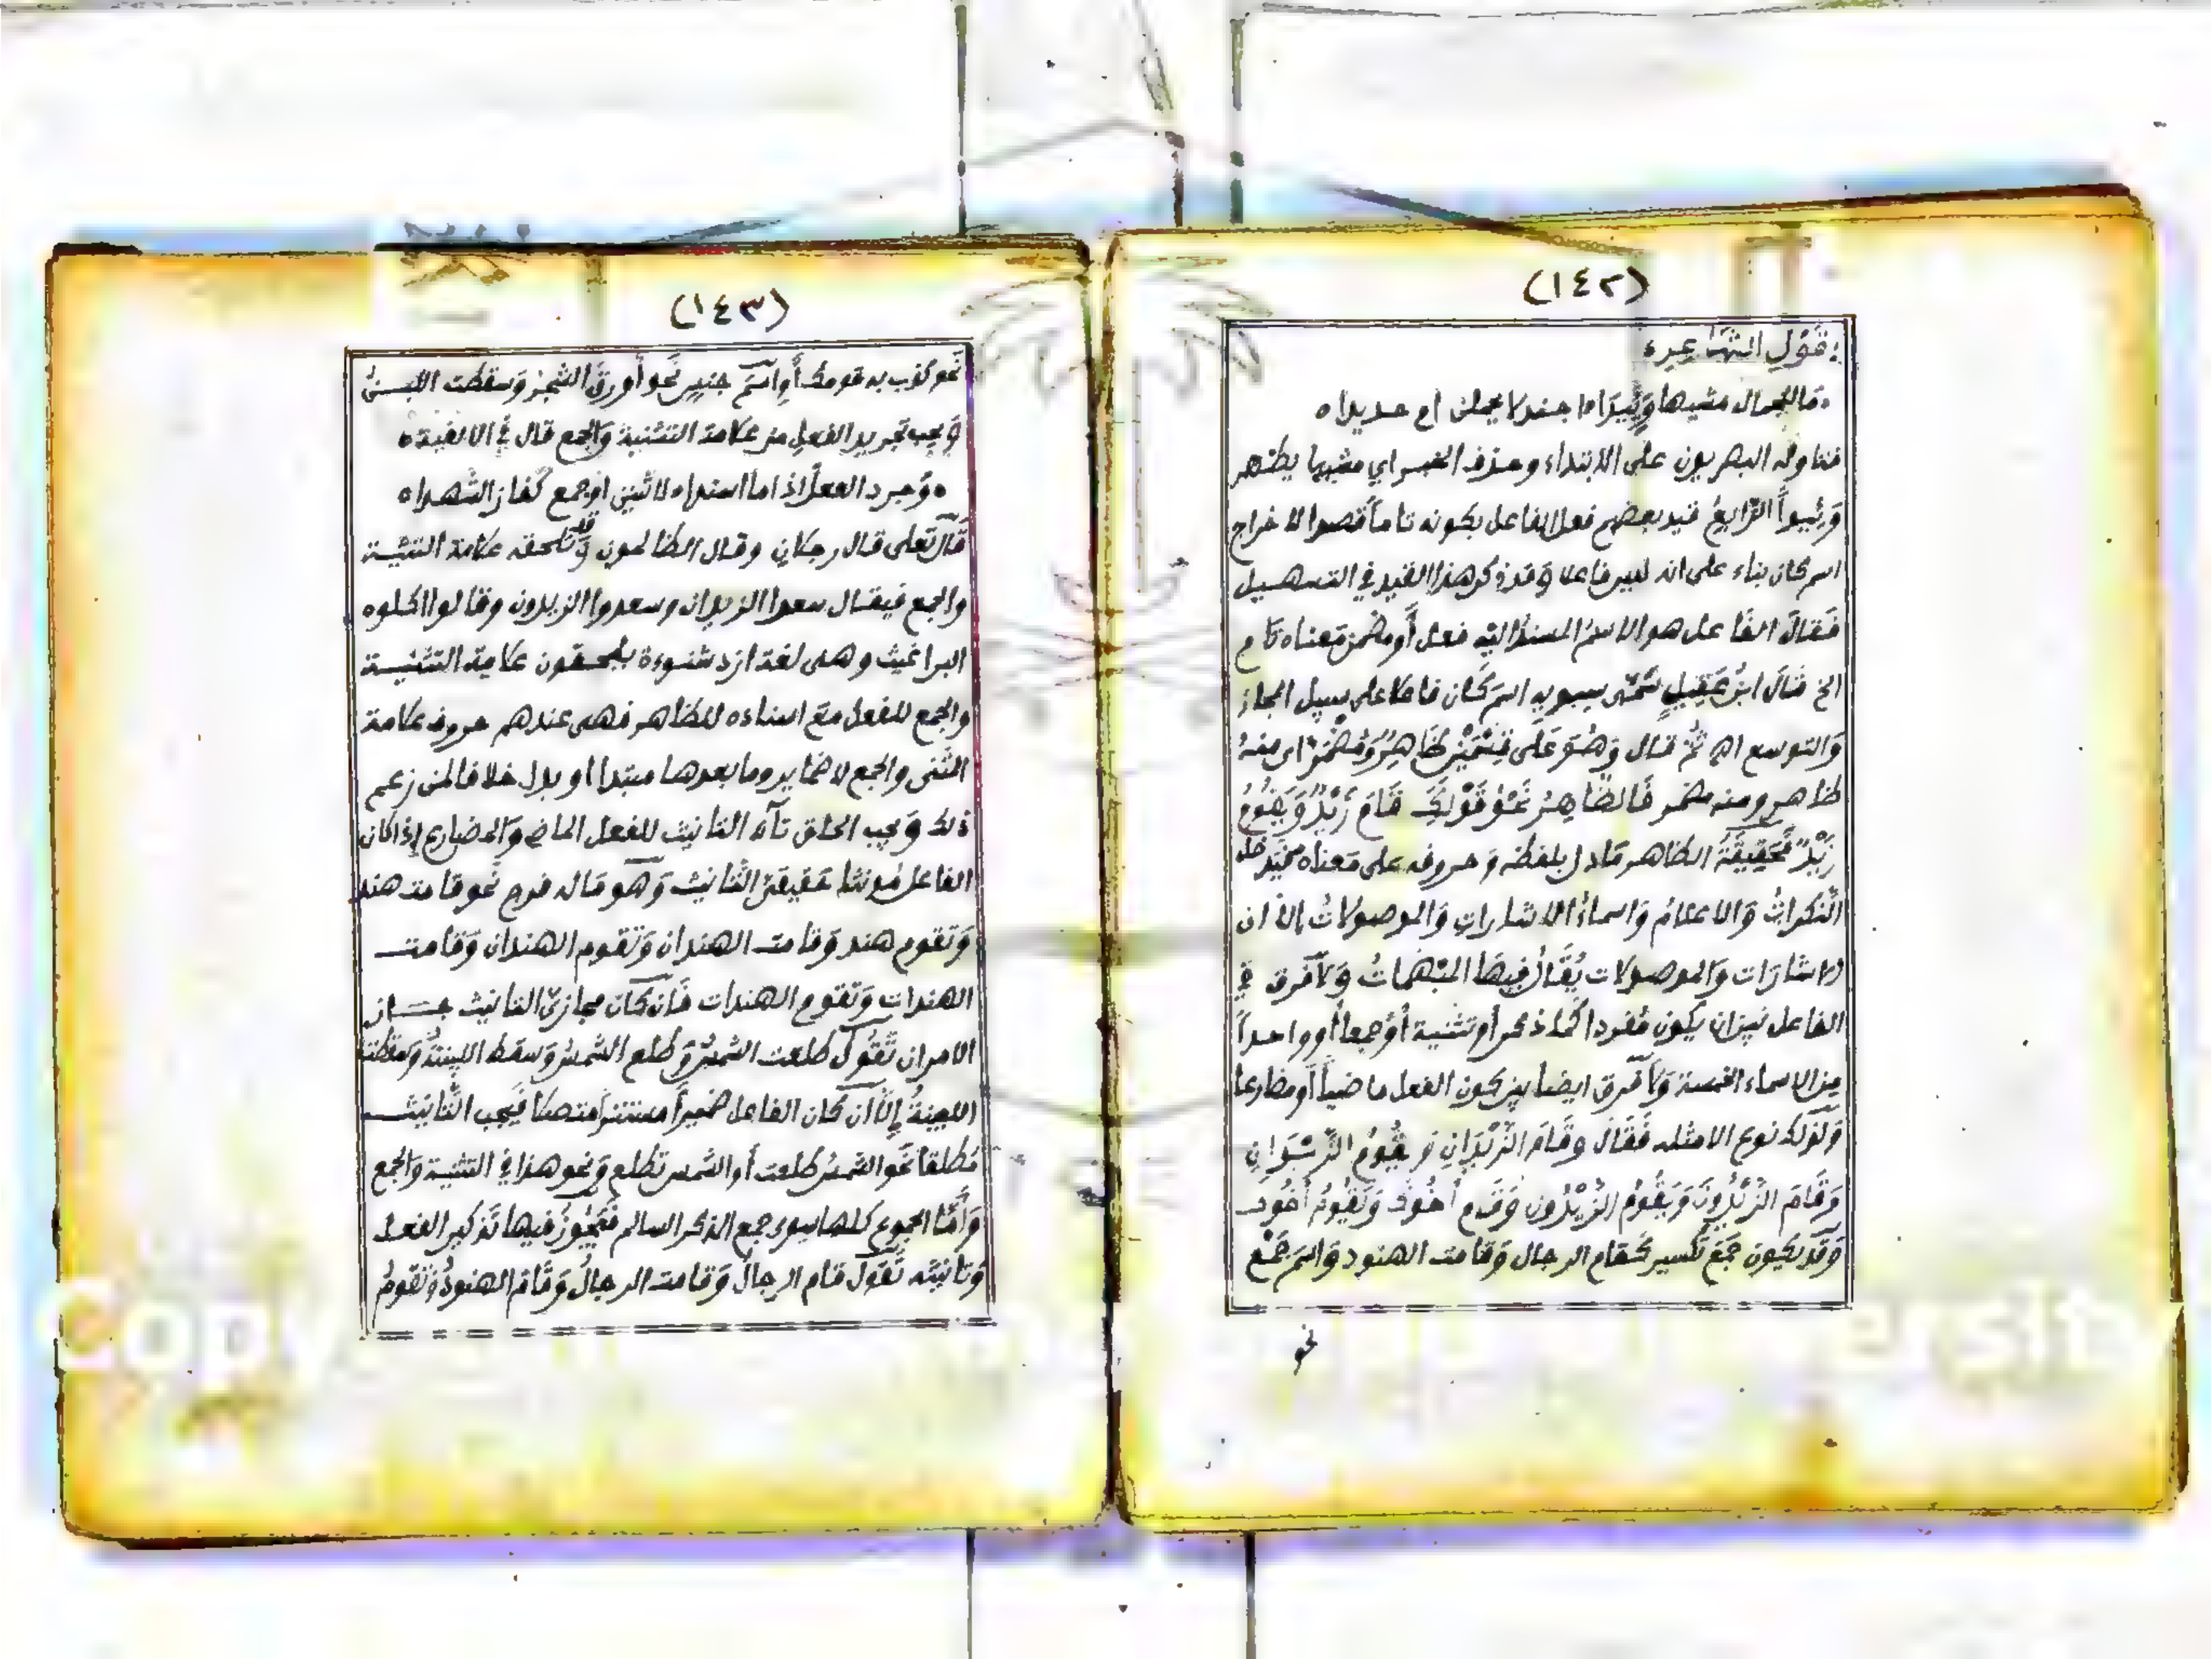 (١٤٢)
بقَوْلِ الشَّاعِرِ
ما للجمال مشيها وَئِيدَا ه اجندلا يحملن ام حديدا ه
فتاوله البصريون على الابتداء وحذف الخبر اي مشيها يظهر
وَئِيداً الرّابعُ قيد بعضهم فعل الفاعل بكونه تاماً قصدا لاخراج
اسم كان بناء على انه ليس فاعلا وَقد ذكر هذا القيد في التسهيل
فَقالَ الفَاعل هو الاسمُ المسندُ اليْه فعل أَو مضمن مَعناه تام
الخ قالَ ابنُ عَقِيلٍ سَمّى سيبويه اسمَ كَان فاعلا على سبيل المجاز
وَالتوسع اه ثُمَّ قال وَهُوَ عَلَى قِسْمَيْنِ ظَاهِرٌ وَمُضْمَرٌ اى منهُ
ظاهر ومنه مضمر فَالظَّاهِرُ نَحْوُ قَوْلِكَ قَامَ زَيْدٌ وَيَقُومُ
زَيْدٌ فَحَقِيقَةُ الظاهر مَا دل بلفظه وَحروفه على مَعناه فيَدخل
النَّكراتُ وَالاعلامُ وَاسماءُ الاشاراتِ وَالموصولاتُ إلا ان
الاشارَات وَالموصولات يُقَالُ فِيهَا المبْهماتُ وَلاَ فَرق في
الفاعل بين ان يكون مُفردا كما ذكر أو تثنية أَوْ جمعا أو واحداً
من الاسماء الخمسة وَلاَ فَرق ايضا بين كون الفعل ماضياً أو مضارعا
وَلذلك نوع الامثله فَقَالَ وقَامَ الزَّيْدَانِ وَيَقُومُ الزَّيْدَانِ
وَقَامَ الزَّيْدُونَ وَيَقُومُ الزَّيْدُون وَقَام أَخُوك وَيَقُومُ أَخُوك
وَقَدْ يكون جَمْعَ تَكسير كقام الرجال وَقامت الهنود وَاسم جَمْع
نحو
(١٤٣)
نَحو كذب به قومك أَو اسمَ جنسٍ نَحو أَورقَ الشجرُ وَسقطت اللبنُ
وَيجب تجريد الفعلِ من علامة التثنية وَالجمع قال في الالفية ه
ه وَجرد الفعلَ إذا ما اسندا ه لاثنين او جمع كَفاز الشُّهدا ه
قَالَ تَعلى قال رجلانِ وقال الظالمون وَقد تلحقه علامة التثنية
والجمع فيقال سعدا الزيدان وسعدوا الزيدون وقالوا اكلوه
البراغيث وهى لغة ازد شنوءة يلحقون علامة التثنية
والجمع للفعل مع اسناده للظاهر فهى عندهم حروف علامة
المثنى والجمع لا ضماير وما بعدها مبتدا او بدل خلافا لمن زعم
ذلك وَيجب الحاق تاء التانيث للفعل الماضى وَالمضارع إذا كان
الفاعل مُونثا حَقيقىَّ التَّانيث وَهو مَا له فرج نَحو قامت هند
وَتَقوم هند وَقامت الهندان وَتَقوم الهندان وَقامت
الهندات وَتَقوم الهندات فَان كَان مجازىّ التانيث جَاز
الامران تَقُول طلعت الشمسُ وَطلع الشمسُ وَسقط اللبنةُ وَسقطت
اللبِنةُ إلاَّ ان كان الفاعل ضَميراً مستتراً متصلا فَيَجب التَّانيث
مُطلقا نَحو الشمسُ طلعت أو الشمس تَطلع وَنحو هذا في التثنية وَالجمع
وَأَمَّا الجموع كلها سِوى جمع الذكر السالم فَيَجُوزُ فيها تَذكير الفعل
وَتانيثه تَقول قام الرجالُ وَقامت الرجالُ وَقَامَ الهنودُ وَتَقومُ